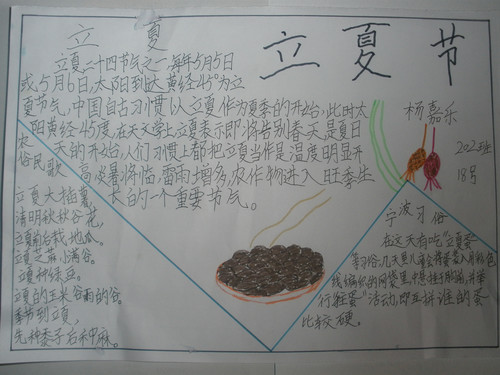 立夏
立夏节
立夏,二十四节气之一,每年5月5日
或5月6日,太阳到达黄经45°为立
夏节气,中国自古习惯以立夏作为夏季的开始,此时太
阳黄经45度,在天文学上立夏表示即将告别春天,是夏日
天的开始,人们习惯上都把立夏当作是温度明显开
高,炎暑将临,雷雨增多,农作物进入旺季生
长的一个重要节气。
杨嘉乐
202班
18号
农谷民歌
立夏大插薯,
清明秋秋谷花,
立夏前后栽地瓜。
立夏芝麻小满谷。
立夏种绿豆。
立夏的玉米谷雨的谷。
季节到立夏,
先种黍子后种麻。
宁波习俗
在这天有吃"立夏蛋"
等习俗;几天里儿童会将蛋装入用的色
线编织的网袋里,中悬挂于胸前,并举
行"碰蛋"活动,即互拼谁的蛋
比较硬。